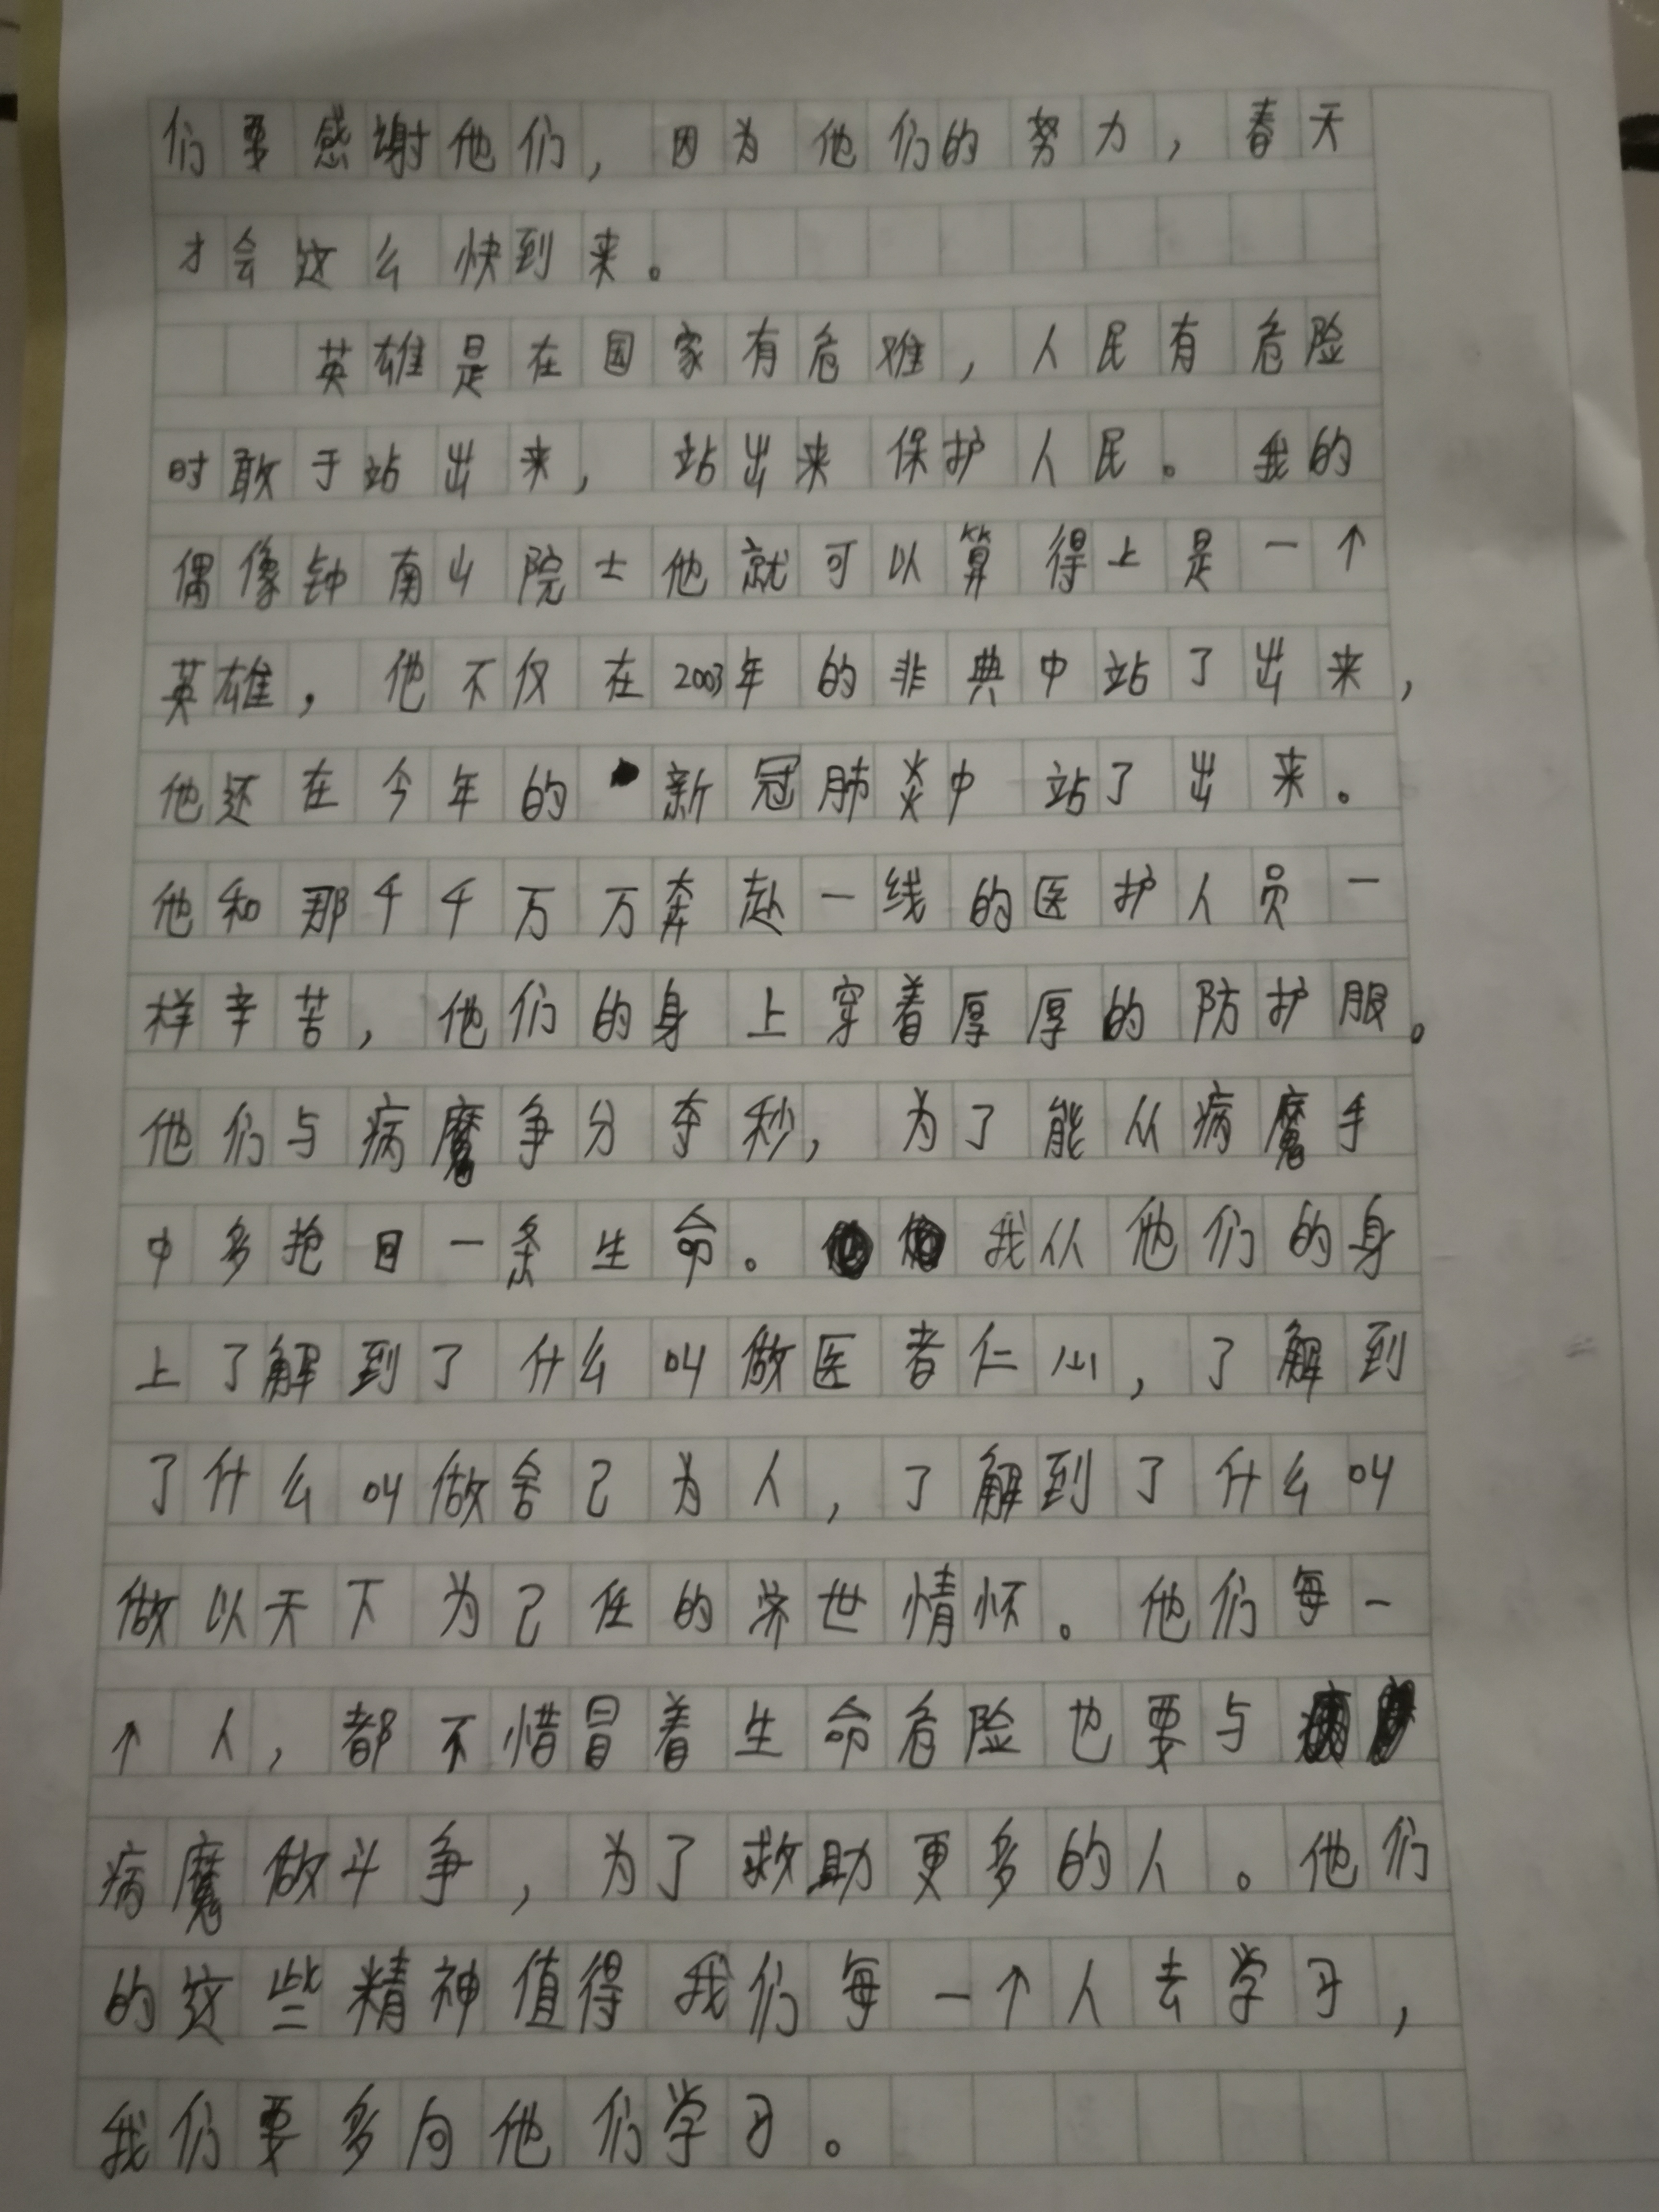 们要感谢他们，因为他们的努力，春天
才会这么快到来。
英雄是在国家有危难，人民有危险
时敢于站出来，站出来保护人民。我的
偶像钟南山院士他就可以算得上是一个
英雄，他不仅在2003年的非典中站了出来，
他还在今年的新冠肺炎中站了出来。
他和那千千万万奔赴一线的医护人员一
样辛苦，他们的身上穿着厚厚的防护服。
他们与病魔争分夺秒，为了能从病魔手
中多抢回一条生命。我从他们的身
上了解到了什么叫做医者仁心，了解到
了什么叫做舍己为人，了解到了什么叫
做以天下为己任的济世情怀。他们每一
个人，都不惜冒着生命危险也要与
病魔做斗争，为了救助更多的人。他们
的这些精神值得我们每一个人去学习，
我们要多向他们学习。